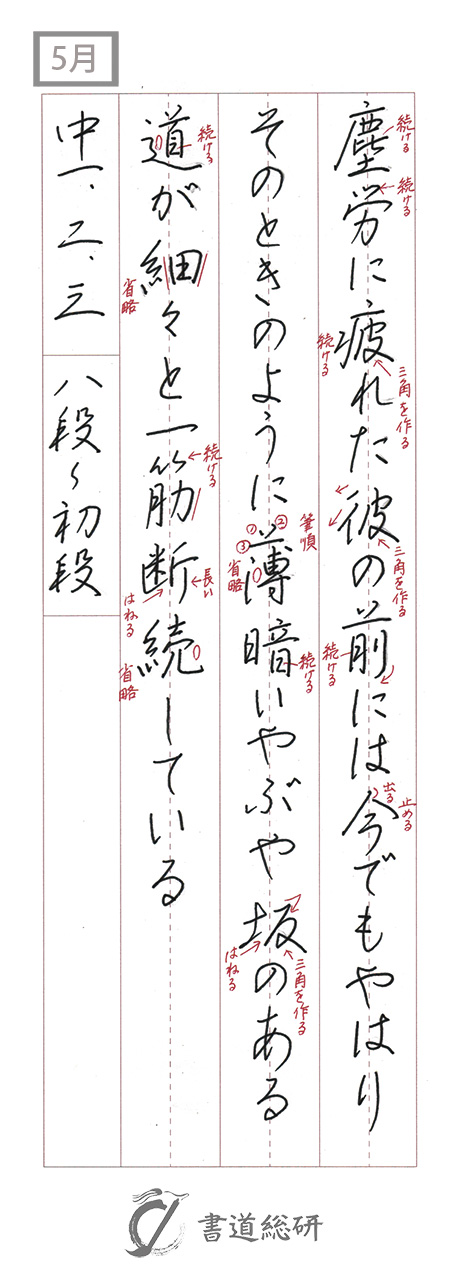 5月
塵労に疲れた彼の前には今でもやはり
続ける
続ける
続ける
三角を作る
三角を作る
続ける
出る
止める
そのときのように薄暗いやぶや坂のある
筆順
①
②
③
省略
続ける
はねる
三角を作る
道が細々と一筋断続している
続ける
省略
続ける
長い
はねる
省略
中一、二、三
八段〜初段
書道総研